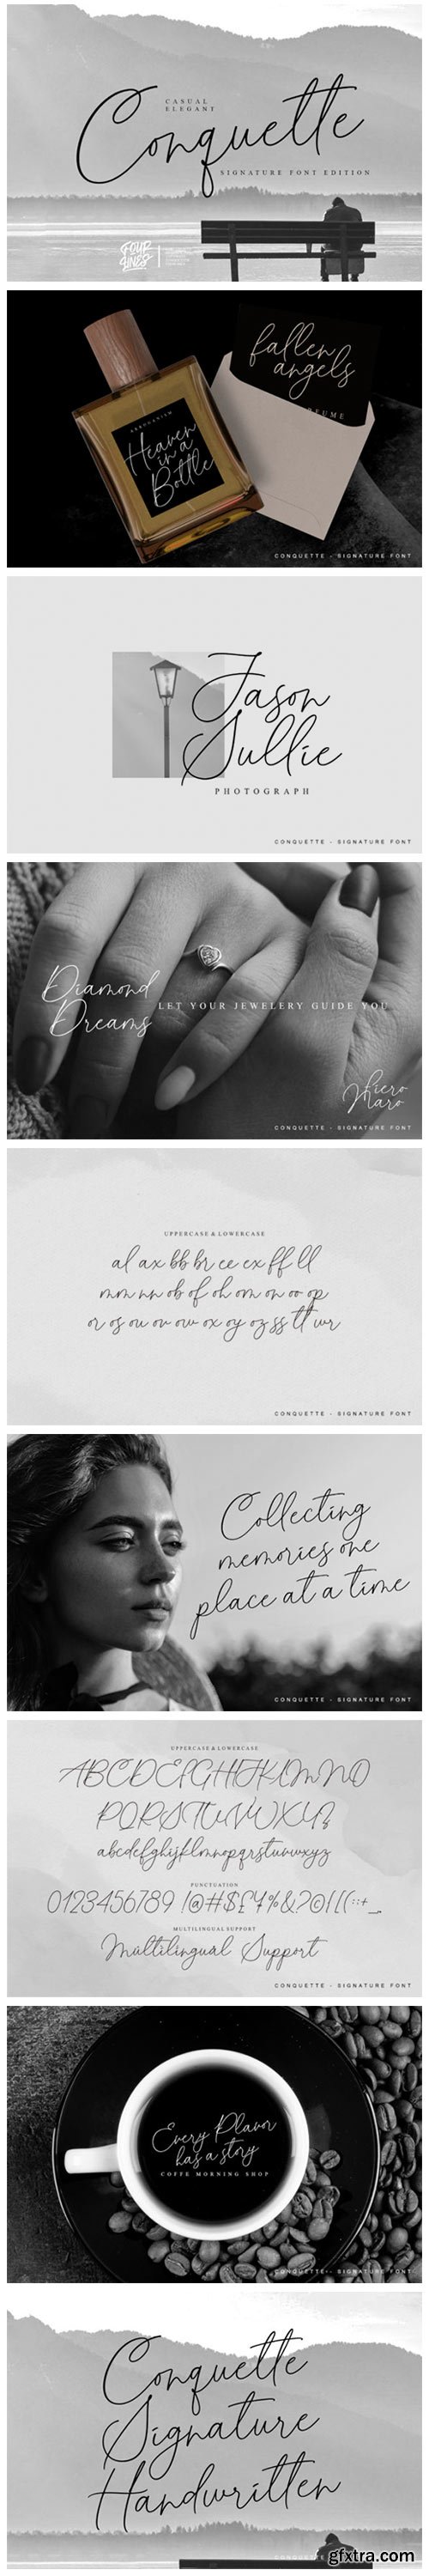 CASUAL
ELEGANT
Conquette
SIGNATURE FONT EDITION
FOUR
LINES
fallen
angels
Heaven
in a
Bottle
CONQUETTE - SIGNATURE FONT
Jason
Sullie
PHOTOGRAPH
CONQUETTE - SIGNATURE FONT
Diamond
Dreams
LET YOUR JEWELERY GUIDE YOU
fiero
Maro
CONQUETTE - SIGNATURE FONT
UPPERCASE & LOWERCASE
al ax bb br ee ex ff ll
mm nn ob of oh om on oo op
or os ou ov ow ox oy oz ss tt wr
CONQUETTE - SIGNATURE FONT
Collecting
memories one
place at a time
CONQUETTE - SIGNATURE FONT
UPPERCASE & LOWERCASE
ABCDEFGHIJKLMNO
PQRSTUVWXYZ
abcdefghijklmnopqrstuvwxyz
PUNCTUATION
0123456789 !@#$£¥%&?©[[(:;+_
MULTILINGUAL SUPPORT
Múltilingúál Support
CONQUETTE - SIGNATURE FONT
Every Flavor
has a story
COFFE MORNING SHOP
CONQUETTE - SIGNATURE FONT
Conquette
Signature
Handwritten
gfxtra.com